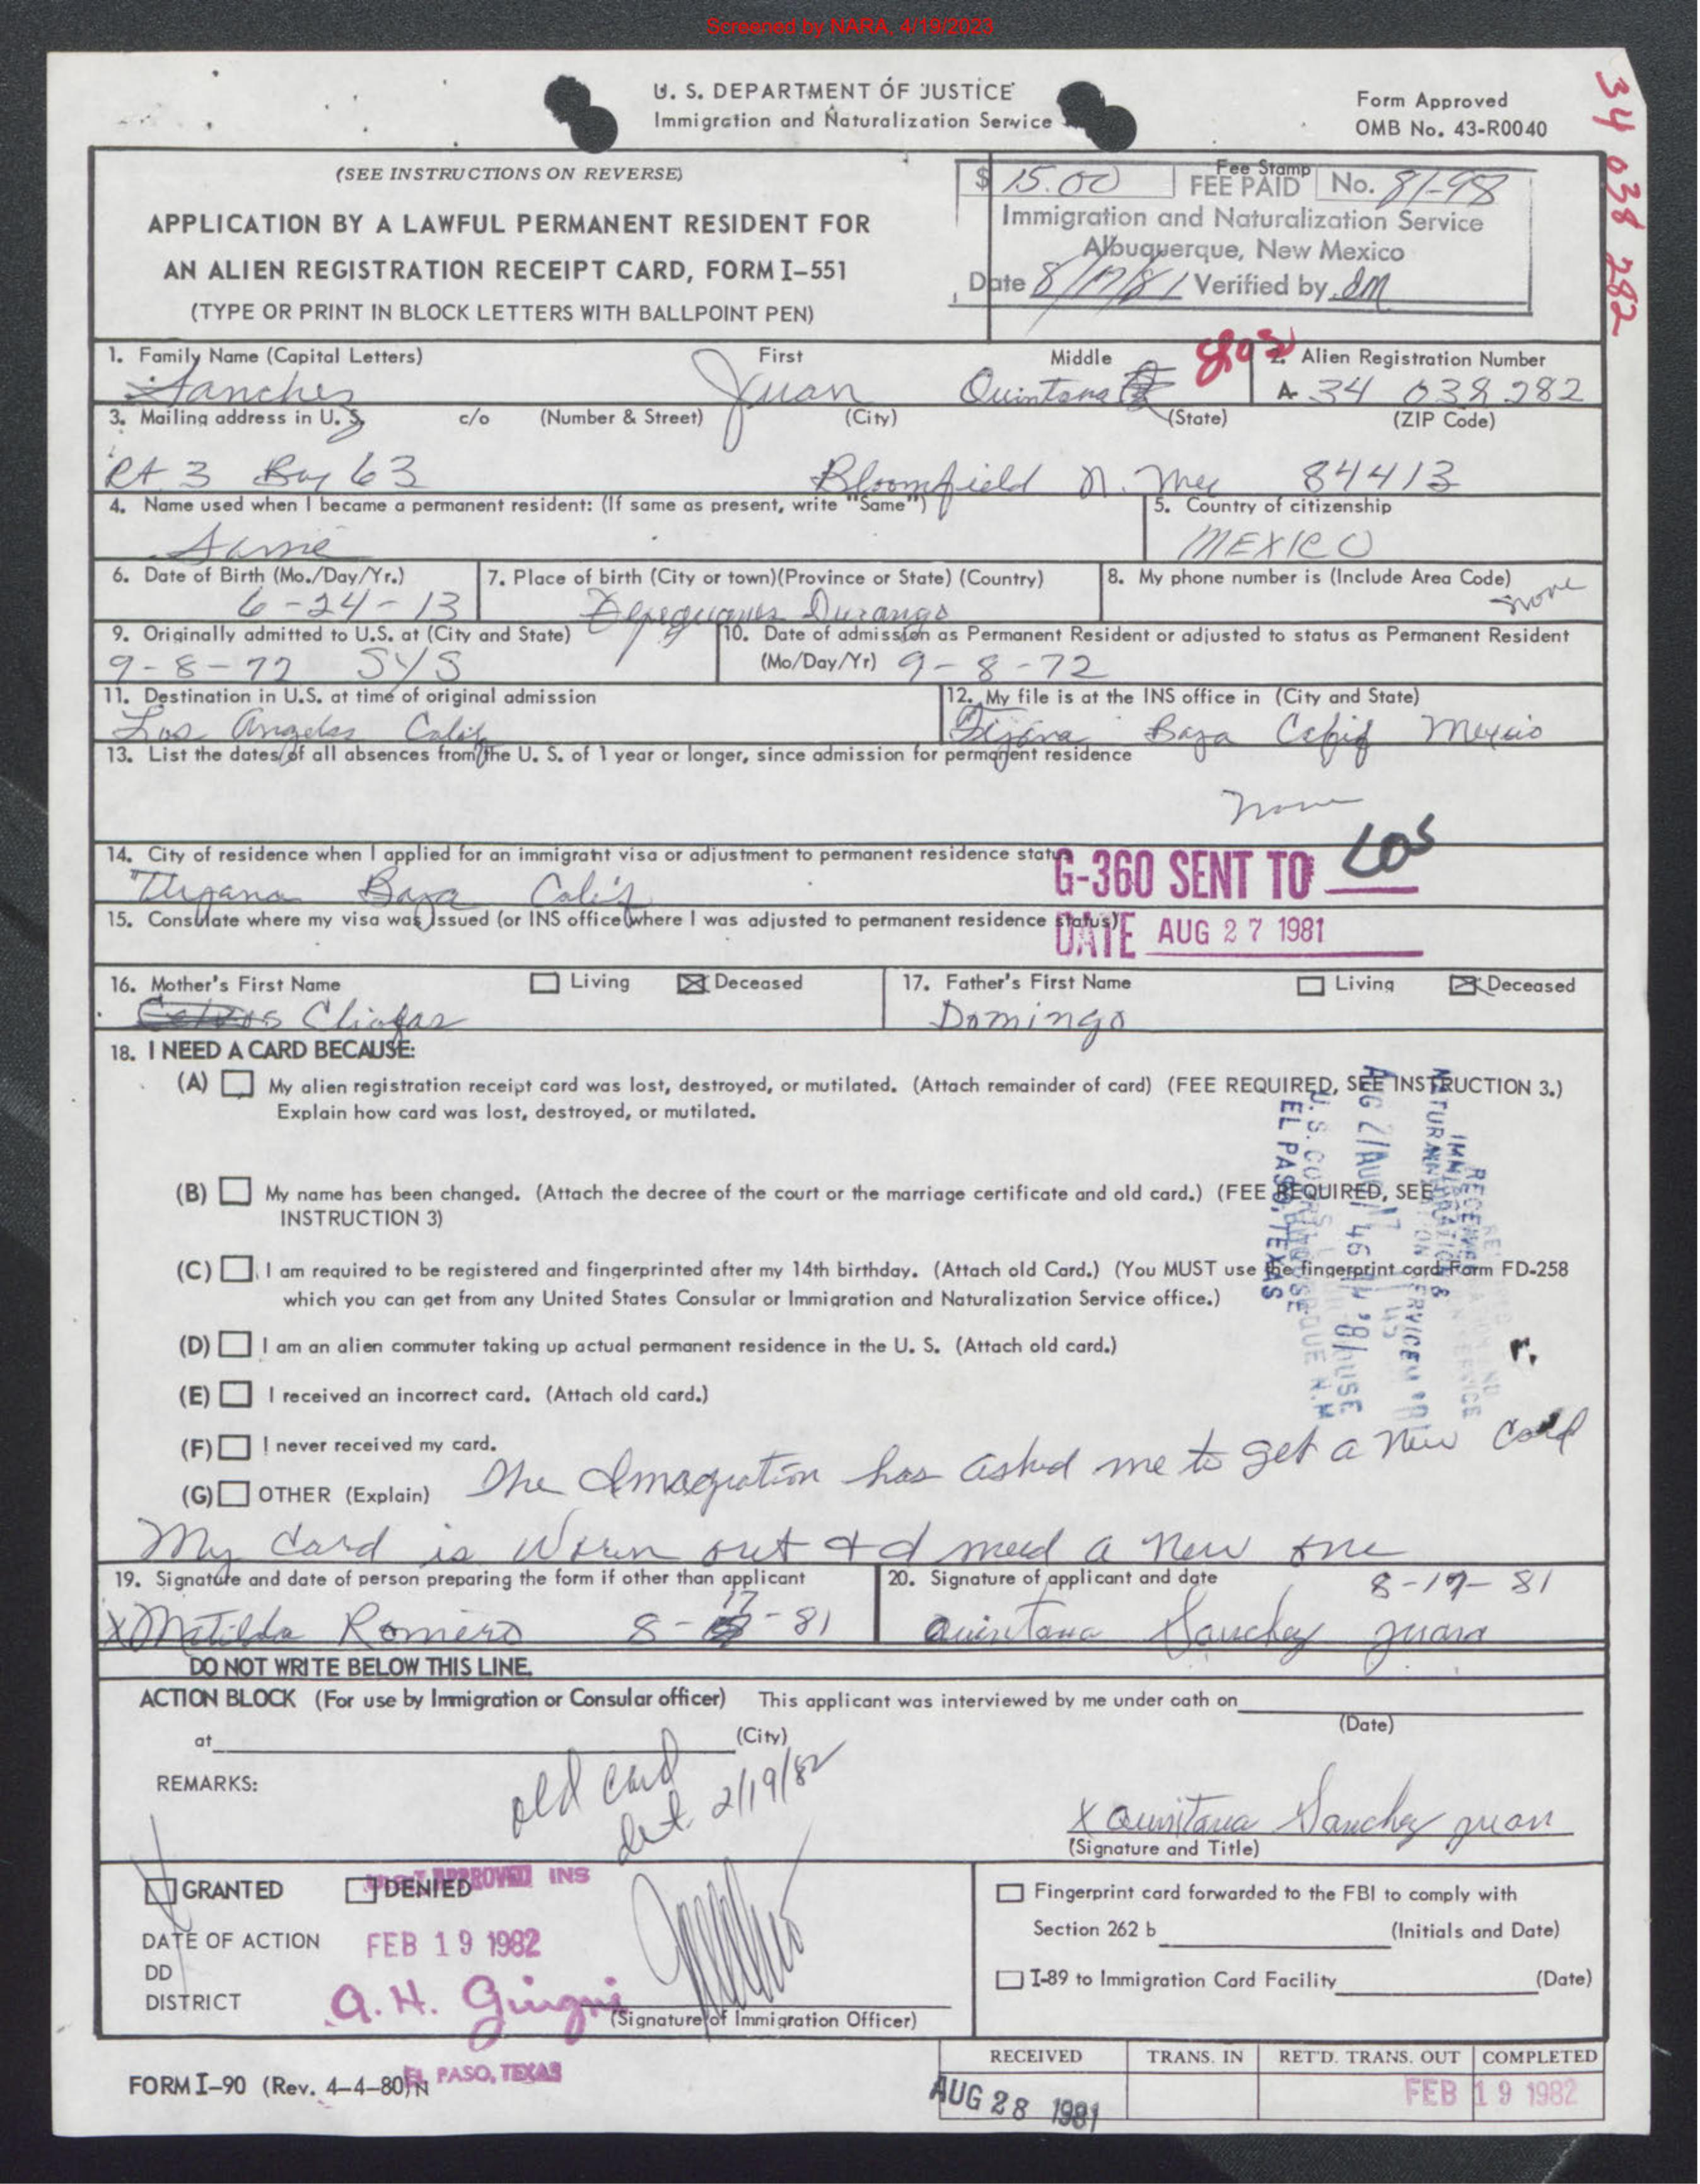 Screened by NARA, 4/19/2023
U. S. DEPARTMENT OF JUSTICE
Immigration and Naturalization Service
Form Approved
OMB No. 43-R0040
34 038 282
(SEE INSTRUCTIONS ON REVERSE)
APPLICATION BY A LAWFUL PERMANENT RESIDENT FOR
AN ALIEN REGISTRATION RECEIPT CARD, FORM I-551
(TYPE OR PRINT IN BLOCK LETTERS WITH BALLPOINT PEN)
Fee Stamp
$ 15.00 FEE PAID No. 81-98
Immigration and Naturalization Service
Albuquerque, New Mexico
Date 8/17/81 Verified by
1. Family Name (Capital Letters) First Middle 2. Alien Registration Number
Sanchez Juan Quintana A 34 038 282
3. Mailing address in U. S. c/o (Number & Street) (City) (State) (ZIP Code)
Rt 3 Box 63 Bloomfield N. Mex 84413
4. Name used when I became a permanent resident: (If same as present, write "Same") 5. Country of citizenship
Same MEXICO
6. Date of Birth (Mo./Day/Yr.) 7. Place of birth (City or town)(Province or State) (Country) 8. My phone number is (Include Area Code)
6-24-13 Durango none
9. Originally admitted to U.S. at (City and State) 10. Date of admission as Permanent Resident or adjusted to status as Permanent Resident
9-8-72 SYS (Mo/Day/Yr) 9-8-72
11. Destination in U.S. at time of original admission 12. My file is at the INS office in (City and State)
Los Angeles Calif Tijana Baja Calif Mexico
13. List the dates of all absences from the U. S. of 1 year or longer, since admission for permanent residence
none
14. City of residence when I applied for an immigrant visa or adjustment to permanent residence status
Baja Calif
G-360 SENT TO LOS
15. Consulate where my visa was issued (or INS office where I was adjusted to permanent residence status)
DATE AUG 27 1981
16. Mother's First Name Living Deceased 17. Father's First Name Living Deceased
Domingo
18. I NEED A CARD BECAUSE:
(A) My alien registration receipt card was lost, destroyed, or mutilated. (Attach remainder of card) (FEE REQUIRED, SEE INSTRUCTION 3.)
Explain how card was lost, destroyed, or mutilated.
(B) My name has been changed. (Attach the decree of the court or the marriage certificate and old card.) (FEE REQUIRED, SEE
INSTRUCTION 3)
(C) I am required to be registered and fingerprinted after my 14th birthday. (Attach old Card.) (You MUST use the fingerprint card Form FD-258
which you can get from any United States Consular or Immigration and Naturalization Service office.)
EL PASO, TEXAS
(D) I am an alien commuter taking up actual permanent residence in the U. S. (Attach old card.)
(E) I received an incorrect card. (Attach old card.)
(F) I never received my card.
(G) OTHER (Explain) The Imagration has asked me to get a new card
My card is worn out & I need a new one
19. Signature and date of person preparing the form if other than applicant 20. Signature of applicant and date 8-17-81
X Matilda Romero 8-17-81 Quintana Sanchez Juan
DO NOT WRITE BELOW THIS LINE.
ACTION BLOCK (For use by Immigration or Consular officer) This applicant was interviewed by me under oath on
(Date)
at (City)
REMARKS:
old card
2/19/82
X Quintana Sanchez Juan
(Signature and Title)
GRANTED DENIED
APPROVED INS
DATE OF ACTION FEB 19 1982
DD
DISTRICT
(Signature of Immigration Officer)
Fingerprint card forwarded to the FBI to comply with
Section 262 b (Initials and Date)
I-89 to Immigration Card Facility (Date)
FORM I-90 (Rev. 4-4-80)N EL PASO, TEXAS
RECEIVED TRANS. IN RET'D. TRANS. OUT COMPLETED
AUG 28 1981 FEB 19 1982